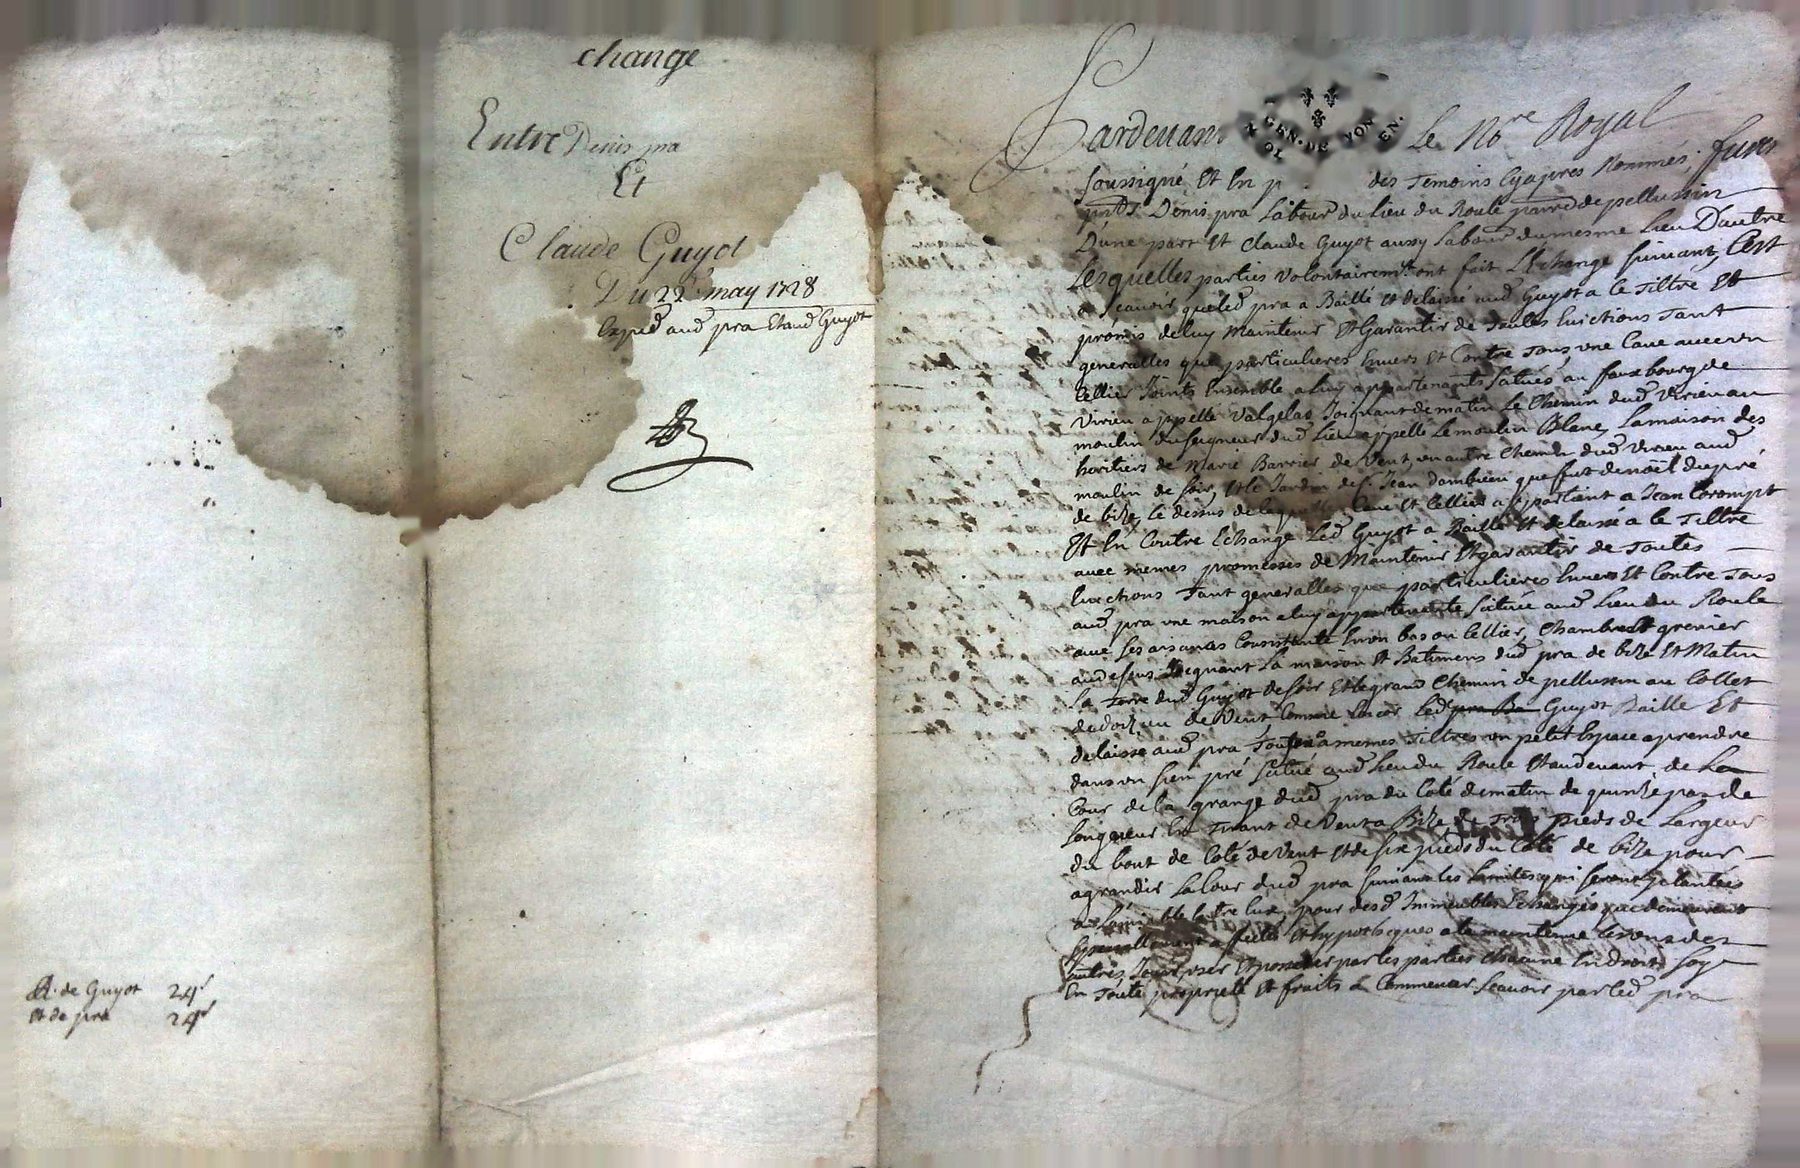 change
Entre Denis pra
Et
Claude Guyot
Du 22e may 1728
Exped aud pra Et aud Guyot
R. de Guyot 24s
Et de pra 24s
Pardevant Le Nore Royal
GEN. DE LYON
soussigné Et En des Temoins Cyapres Nommés, furent
pnts Denis pra Labour du Lieu du Roule parre de pellussin
D'une part Et Claude Guyot aussy Labour du mesme Lieu D'autre
Lesquelles parties volontairemt ont fait L'Echange suivant, C'est
a scavoir que led pra a Baillé Et delaissé aud Guyot a le Tiltre Et
promis de luy Maintenir Et Garantir de Toutes Evictions Tant
generalles que particulieres Envers Et Contre Tous une Cave avec un
Cellier Joints Ensemble a luy appartenants scitués au fauxbourg de
Virieu appellé Valgelas Joignant de matin Le Chemin dud Virieu au
moulin du seigneur dud Lieu appellé Le moulin Blanc, La maison des
heritiers de Marie Barrier de Vent, un autre Chemin dud Virieu aud
moulin de soir, Et le Jardin de sr Jean dombrieu que fut de noel dupré
de bize, le dessus de laquelle Cave Et Cellier appartient a Jean Corompt
Et En Contre Echange Led Guyot a Baillé Et delaissé a le Tiltre
avec memes promesses de Maintenir Et garantir de Toutes
Evictions Tant generalles que particulieres Envers Et Contre Tous
aud pra une maison a luy appartenante scituée aud Lieu du Roule
avec ses aisances Consistante En un bas ou Cellier, Chambre Et grenier
audessus Joignant La maison Et Batiments dud pra de bize Et Matin
La Terre dud Guyot de soir Et le grand Chemin de pellussin au Collet
de doizieu de Vent Comme Encor Led pra Ba Guyot Baille Et
delaisse aud pra Toujours a memes Tiltres un petit Espace a prendre
dans un sien pré scitué aud Lieu du Roule Et au devant de La
Cour de la grange dud pra du Coté de matin de quinze pas de
Longueur En Tirant de Vent a Bize de Trois pieds de Largeur
du bout de Coté de Vent Et de six pieds du Coté de bize pour
agrandir La Cour dud pra suivant les Limites qui seront plantées
a L'amiable Entre Eux, pour desd Immeubles Echangés que demeurent
specialement affectés Et hypothequés a la maintenue les uns des
autres, Jouir user Et posseder par les parties Chacune En droit soy
En Toute proprieté Et fruits a Commencer, scavoir par led pra